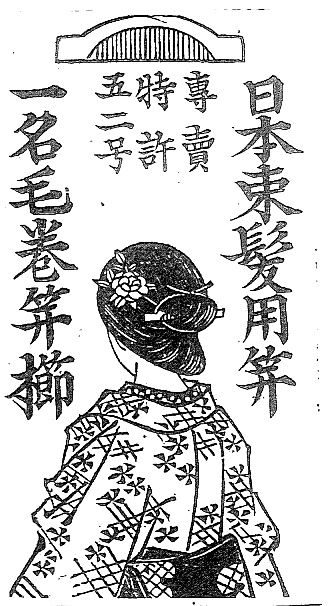 日本束髪用笄
專賣
特許
五二号
一名毛巻笄櫛